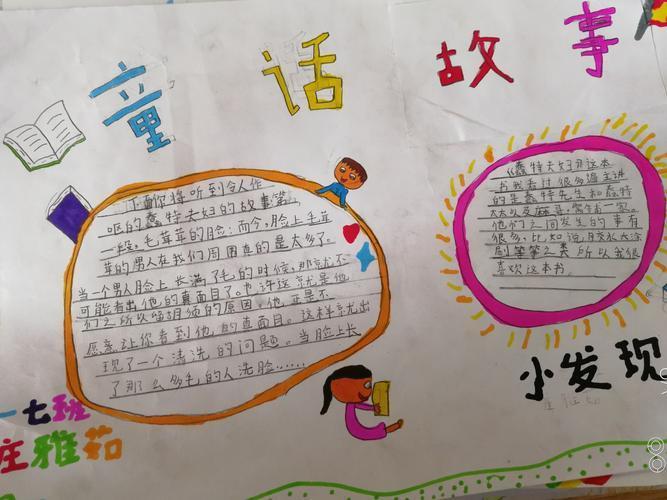 童话故事
下面你将听到令人作
呕的蠢特夫妇的故事第
一段。毛茸茸的脸:而今,脸上毛茸
茸的男人在我们周围真的是太多了。
当一个男人脸上长满了毛的时候,那就不
可能看出他的真面目了。也许这就是他
们之所以留胡须的原因,他
愿意让你看到他的真面目。这样就出
现了一个清洗的问题。当脸上长
了那么多毛的人洗脸……
《蠢特夫妇》这本
书我看过很多遍主讲
的是蠢特先生和蠢特
太太以及
他们之间发生的事有
很多,比如说,
所以我很
喜欢这本书。
小发现
一七班
庄雅茹